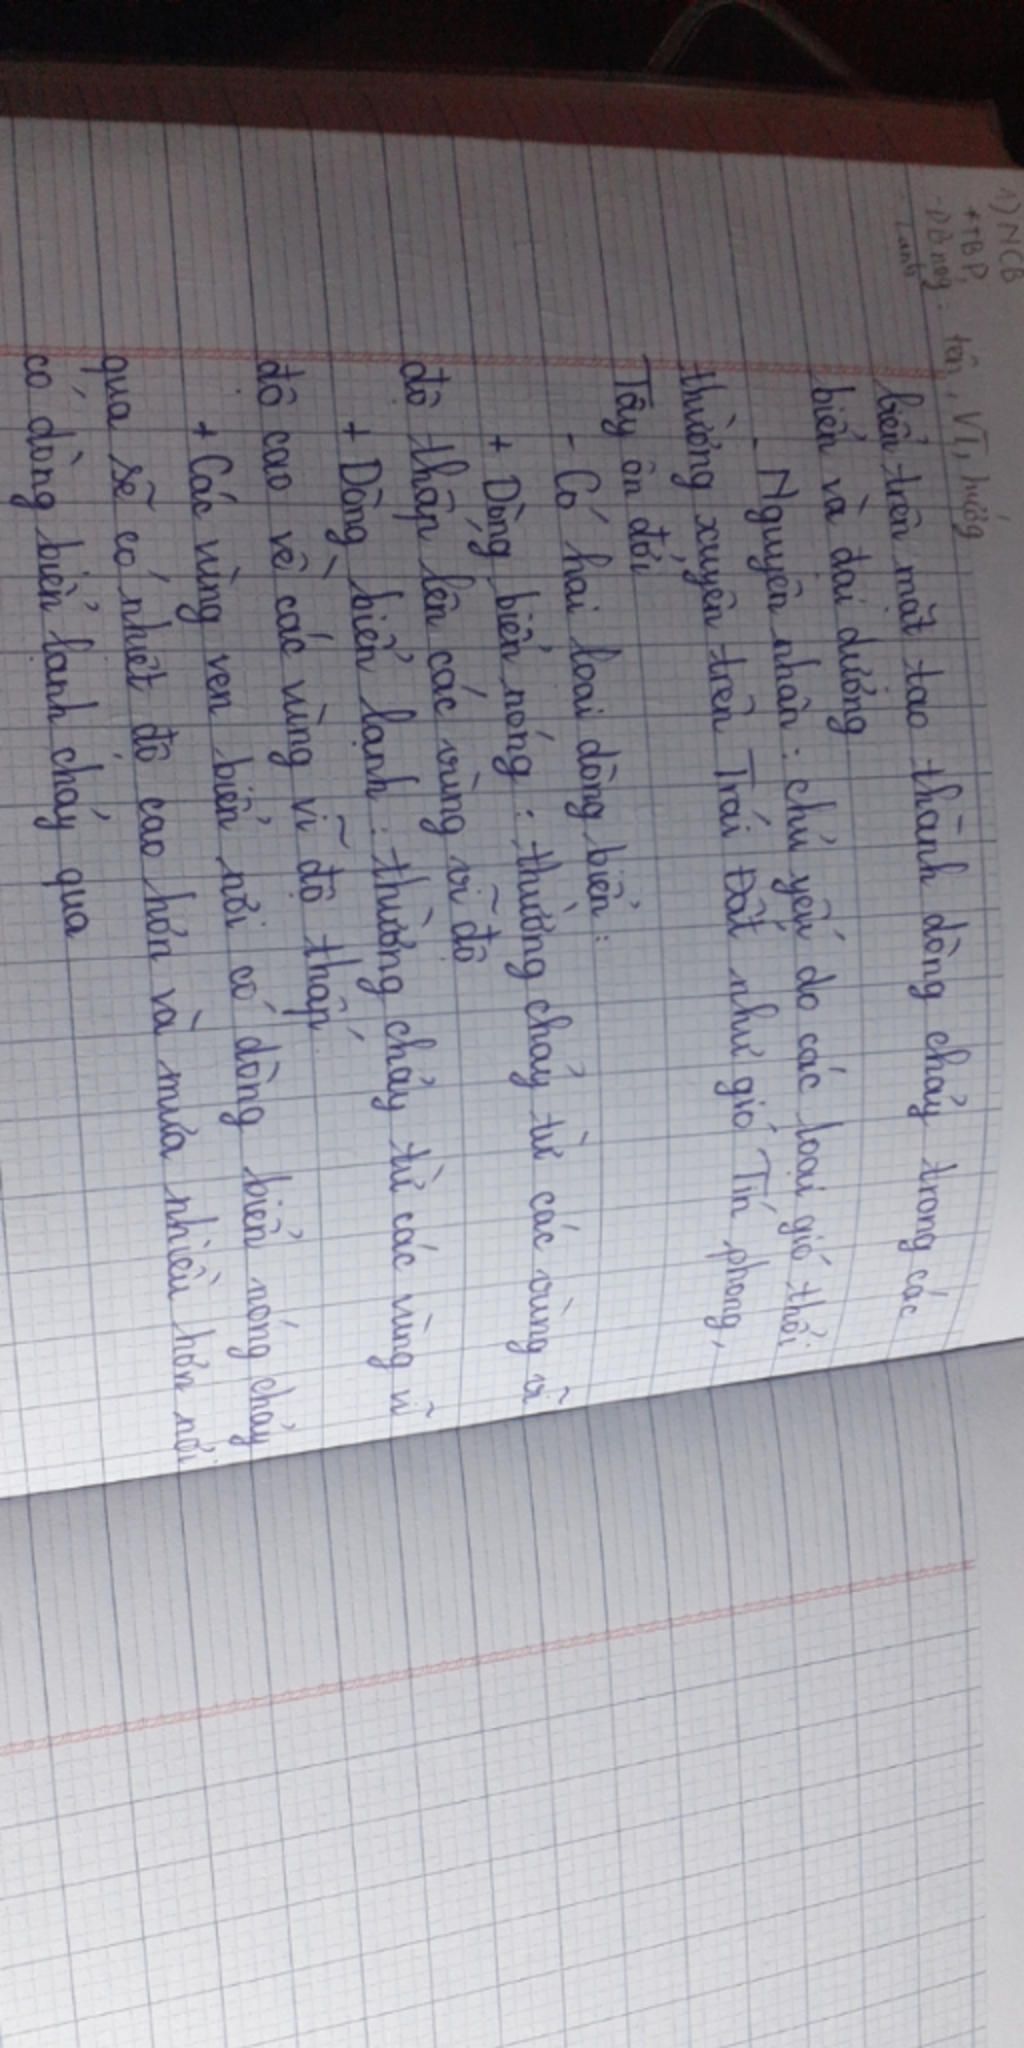 1) NCB
+ TBD
tên, VT, hướng
- Lạnh
biển trên mặt tạo thành dòng chảy trong các
biển và đại dương
- Nguyên nhân : chủ yếu do các loại gió thổi
thường xuyên trên Trái Đất như gió Tín phong,
Tây ôn đới
- Có hai loại dòng biển :
+ Dòng biển nóng : thường chảy từ các vùng vĩ
độ thấp lên các vùng vĩ độ
+ Dòng biển lạnh : thường chảy từ các vùng vĩ
độ cao về các vùng vĩ độ thấp
+ Các vùng ven biển nơi có dòng biển nóng chảy
qua sẽ có nhiệt độ cao hơn và mưa nhiều hơn nơi
có dòng biển lạnh chảy qua